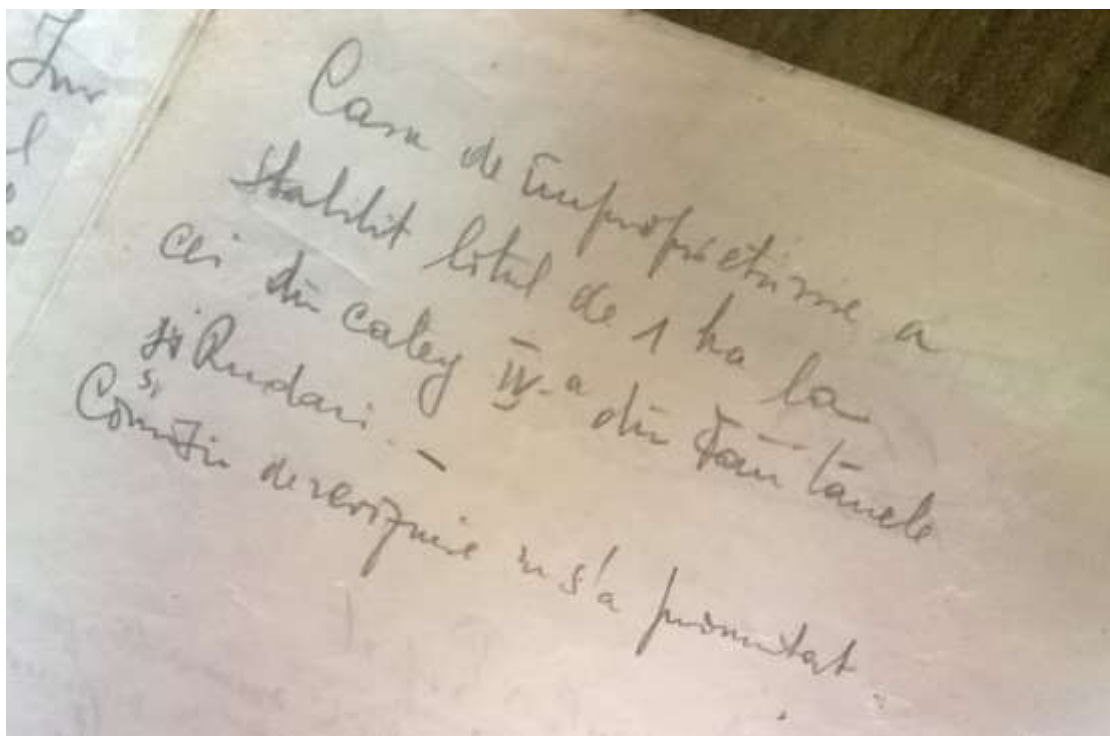 Casa de împroprietărire a
stabilit lotul de 1 ha la
cei din categ IV-a din Fântânele
și Rudari. –
Comisia de reviziune nu s'a pronunțat.